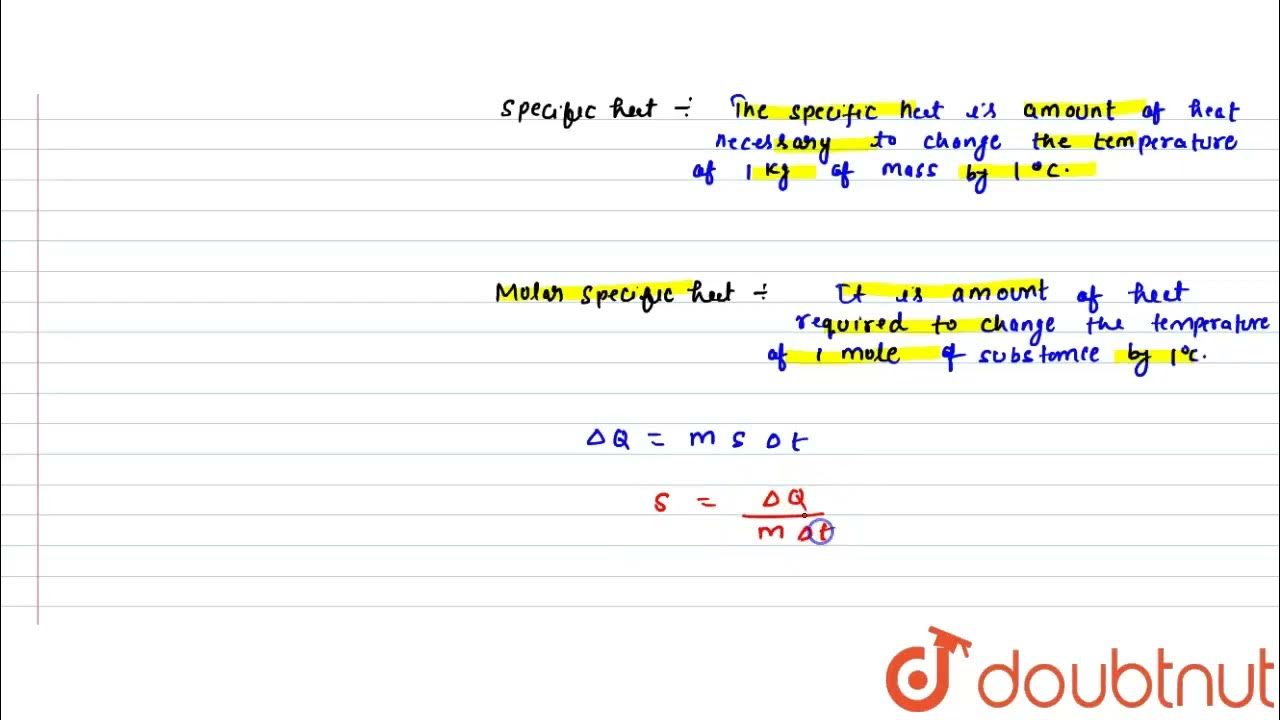 Specific heat ÷ The specific heat is amount of heat
necessary to change the temperature
of 1 Kg of mass by 1°C.
Molar specific heat ÷ It is amount of heat
required to change the temperature
of 1 mole of substance by 1°c.
ΔQ = m s Δt
s = ΔQ
m Δt
doubtnut